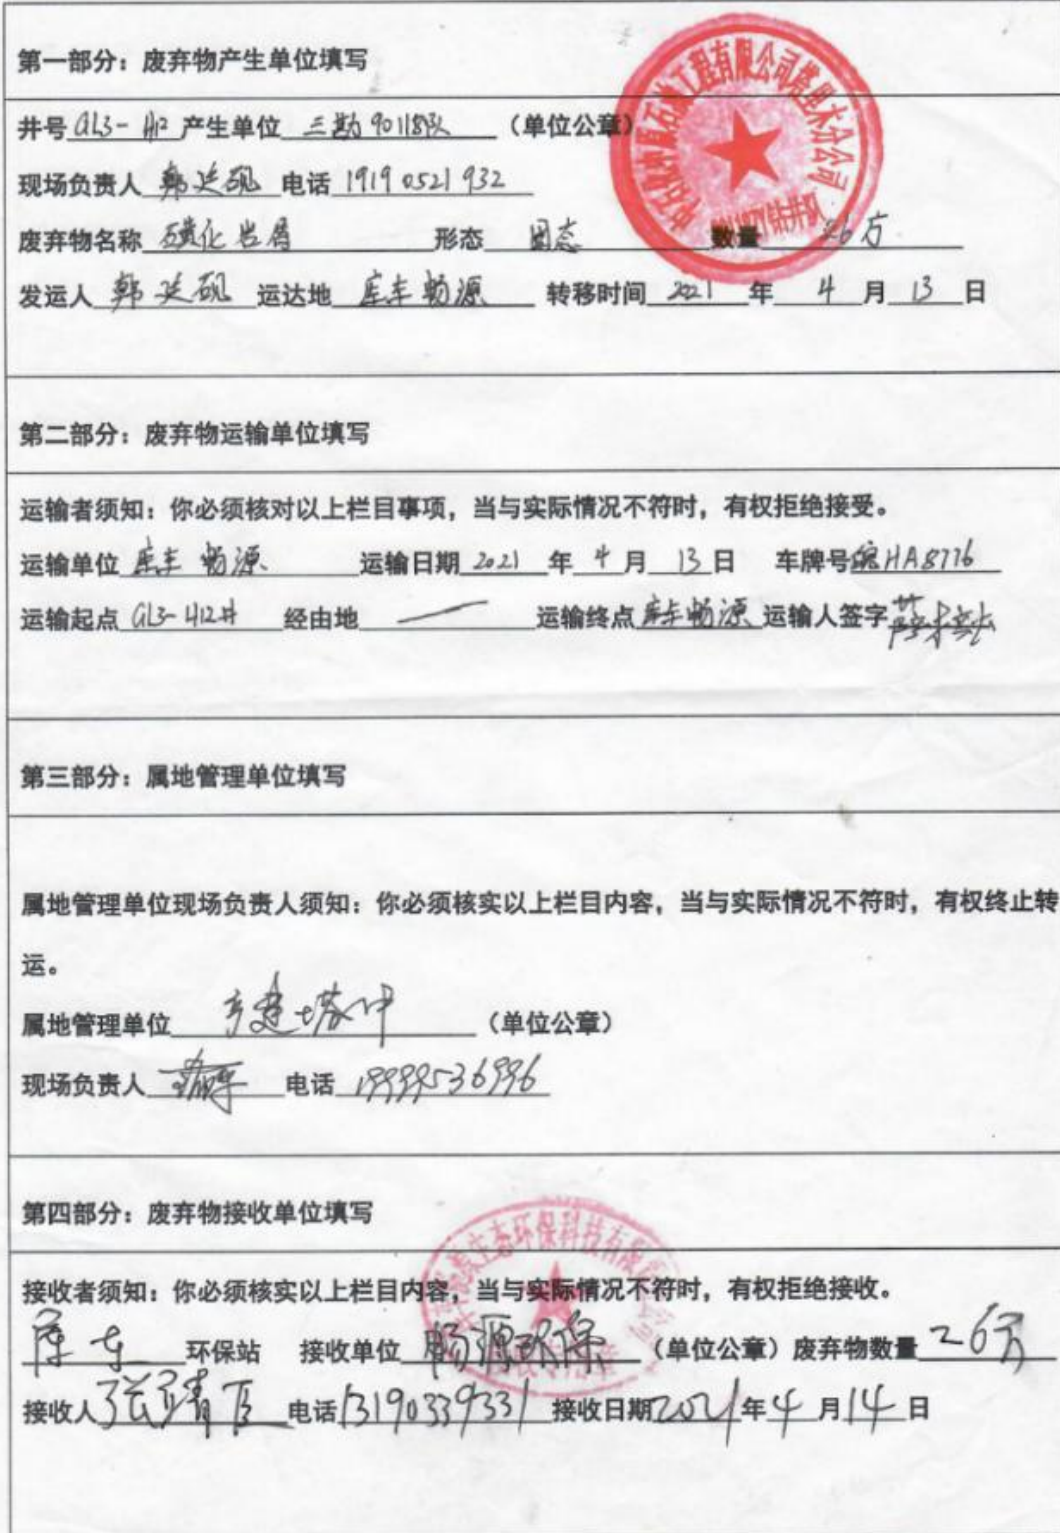 第一部分：废弃物产生单位填写
井号 GL3-H12 产生单位 三勘90118队 （单位公章）
现场负责人 韩延砚 电话 19190521932
废弃物名称 磺化岩屑 形态 固态 数量 26方
发运人 韩延砚 运达地 库车畅源 转移时间 2021 年 4 月 13 日
第二部分：废弃物运输单位填写
运输者须知：你必须核对以上栏目事项，当与实际情况不符时，有权拒绝接受。
运输单位 库车畅源 运输日期 2021 年 4 月 13 日 车牌号 HA8776
运输起点 GL3-H12井 经由地 — 运输终点 库车畅源 运输人签字
第三部分：属地管理单位填写
属地管理单位现场负责人须知：你必须核实以上栏目内容，当与实际情况不符时，有权终止转
运。
属地管理单位 塔中 （单位公章）
现场负责人 电话 19999536996
第四部分：废弃物接收单位填写
接收者须知：你必须核实以上栏目内容，当与实际情况不符时，有权拒绝接收。
库车 环保站 接收单位 畅源环保 （单位公章）废弃物数量 26方
接收人 张靖 电话 13190339331 接收日期 2021 年 4 月 14 日